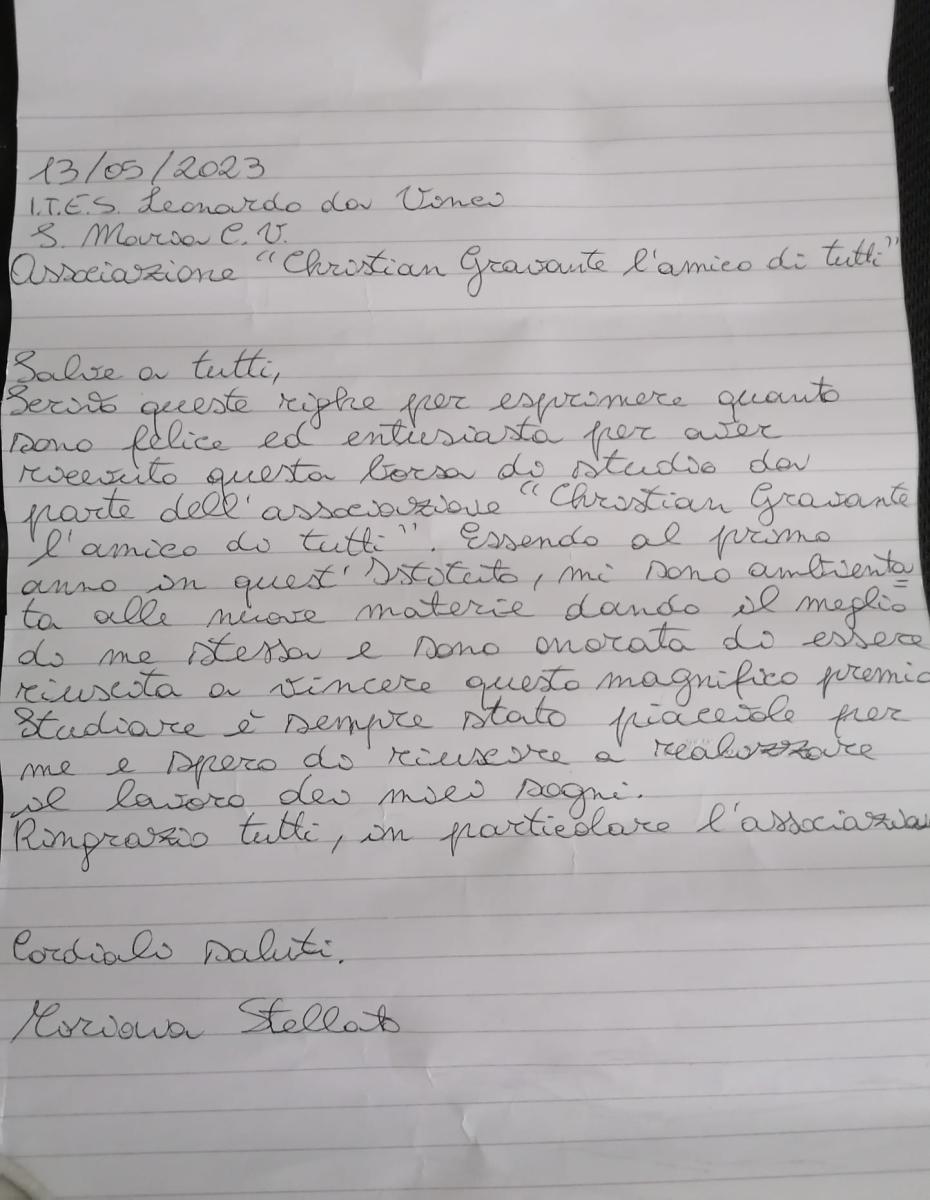 13/05/2023
I.T.E.S. Leonardo da Vinci
S. Maria C.V.
Associazione "Christian Gravante l'amico di tutti"
Salve a tutti,
Scrivo queste righe per esprimere quanto
sono felice ed entusiasta per aver
ricevuto questa borsa di studio da
parte dell'associazione "Christian Gravante
l'amico di tutti". Essendo al primo
anno in quest'istituto, mi sono ambienta=
ta alle nuove materie dando il meglio
di me stessa e sono onorata di essere
riuscita a vincere questo magnifico premio
Studiare è sempre stato piacevole per
me e spero di riuscire a realizzare
il lavoro dei miei sogni.
Ringrazio tutti, in particolare l'associazio
Cordiali saluti.
Mariana Stellato